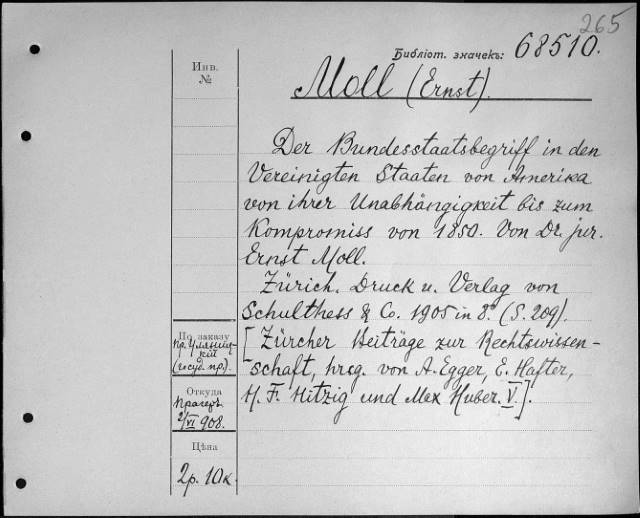 265
Библіот. значекъ: 68510.
Инв.
№
Moll (Ernst).
Der Bundesstaatsbegriff in den
Vereinigten Staaten von Amerika
von ihrer Unabhängigkeit bis zum
Kompromiss von 1850. Von Dr. jur.
Ernst Moll.
Zürich. Druck u. Verlag von
Schulthess & Co. 1905 in 8º. (S. 209).
[Zürcher Beiträge zur Rechtswissen-
schaft, hrsg. von A. Egger, E. Hafter,
H. F. Hitzig und Max Huber. V.].
По заказу
пр. Уляниц-
кій
(госуд. пр.).
Откуда
Прагеръ
2/VI 908.
Цѣна
2 р. 10 к.